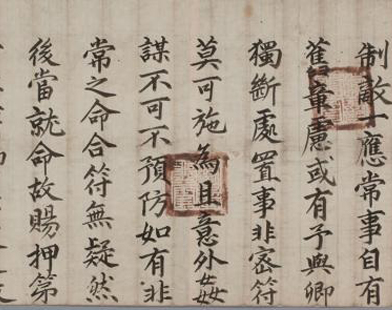 制敵十應常事自有
舊章慮或有予與卿
獨斷處置事非密符
莫可施為且意外姦
謀不可不預防如有非
常之命合符無疑然
後當就命故賜押第